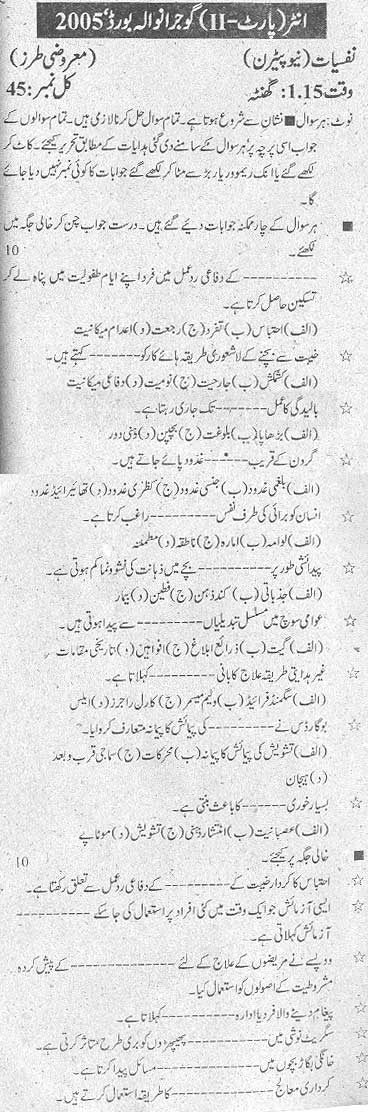 انٹر (پارٹ-II) گوجرانوالہ بورڈ، 2005
نفسیات (نیو پیٹرن) (معروضی طرز)
وقت 1.15: گھنٹہ کل نمبر: 45
نوٹ: ہر سوال ■ نشان سے شروع ہوتا ہے۔ تمام سوال حل کرنا لازمی ہیں۔ تمام سوالوں کے
جواب اسی پرچہ پر ہر سوال کے سامنے دی گئی ہدایات کے مطابق تحریر کیجئے۔ کاٹ کر
لکھے گئے یا انک ریموور یا ربڑ سے مٹا کر لکھے گئے جوابات کا کوئی نمبر نہیں دیا جائے
گا۔
■ ہر سوال کے چار ممکنہ جوابات دیئے گئے ہیں۔ درست جواب چن کر خالی جگہ میں
لکھئے۔ 10
☆ ---------- کے دفاعی ردعمل میں فرد اپنے ایام طفولیت میں پناہ لے کر
تسکین حاصل کرتا ہے۔
(الف) احتباس (ب) تفرد (ج) رجعت (د) اعدام میکانیت
☆ خیبت سے بچنے کے لاشعوری طریقہ ہائے کار کو ------- کہتے ہیں۔
(الف) کشمکش (ب) جارحیت (ج) نومیت (د) دفاعی میکانیت
☆ بالیدگی کا عمل ------- تک جاری رہتا ہے۔
(الف) بڑھاپا (ب) بلوغت (ج) بچپن (د) ذہنی دور
☆ گردن کے قریب ------- غدود پائے جاتے ہیں۔
(الف) بلغمی غدود (ب) جنسی غدود (ج) کظری غدود (د) تھائیرائیڈ غدود
☆ انسان کو برائی کی طرف نفس --------- راغب کرتا ہے۔
(الف) لوامہ (ب) امارہ (ج) ناطقہ (د) مطمئنہ
☆ پیدائشی طور پر ---------- بچے میں ذہانت کی نشوونما کم ہوتی ہے۔
(الف) جذباتی (ب) کند ذہن (ج) فطین (د) بیمار
☆ عوامی سوچ میں مسلسل تبدیلیاں --------- سے پیدا ہوتی ہیں۔
(الف) گیت (ب) ذرائع ابلاغ (ج) افواہیں (د) تاریخی مقامات
☆ غیر ہدایتی طریقہ علاج کا بانی --------- کہلاتا ہے۔
(الف) سگمنڈ فرائیڈ (ب) ولیم میسمر (ج) کارل راجرز (د) ایلس
☆ بوگارڈس نے --------- کی پیمائش کا پیمانہ متعارف کروایا۔
(الف) تشویش کی پیمائش کا پیمانہ (ب) محرکات (ج) سماجی قرب و بعد
(د) ہیجان
☆ بسیار خوری ------- کا باعث بنتی ہے۔
(الف) عصبانیت (ب) انتشار ذہنی (ج) تشویش (د) موٹاپے
■ خالی جگہ پر کیجئے۔ 10
☆ احتباس کا کردار خیبت کے --------- کے دفاعی ردعمل سے تعلق رکھتا ہے۔
☆ ایسی آزمائش جو ایک وقت میں کئی افراد پر استعمال کی جا سکے ----------
آزمائش کہلاتی ہے۔
☆ وولپے نے مریضوں کے علاج کے لئے ---------- کے پیش کردہ
مشروطیت کے اصولوں کو استعمال کیا۔
☆ پیغام دینے والا فرد یا ادارہ ---------- کہلاتا ہے۔
☆ سگریٹ نوشی میں ---------- پھیپھڑوں کو بری طرح متاثر کرتی ہے۔
☆ خانگی بگاڑ بچوں میں ---------- مسائل پیدا کرتا ہے۔
☆ کرداری معالج ---------- کا طریقہ استعمال کرتے ہیں۔